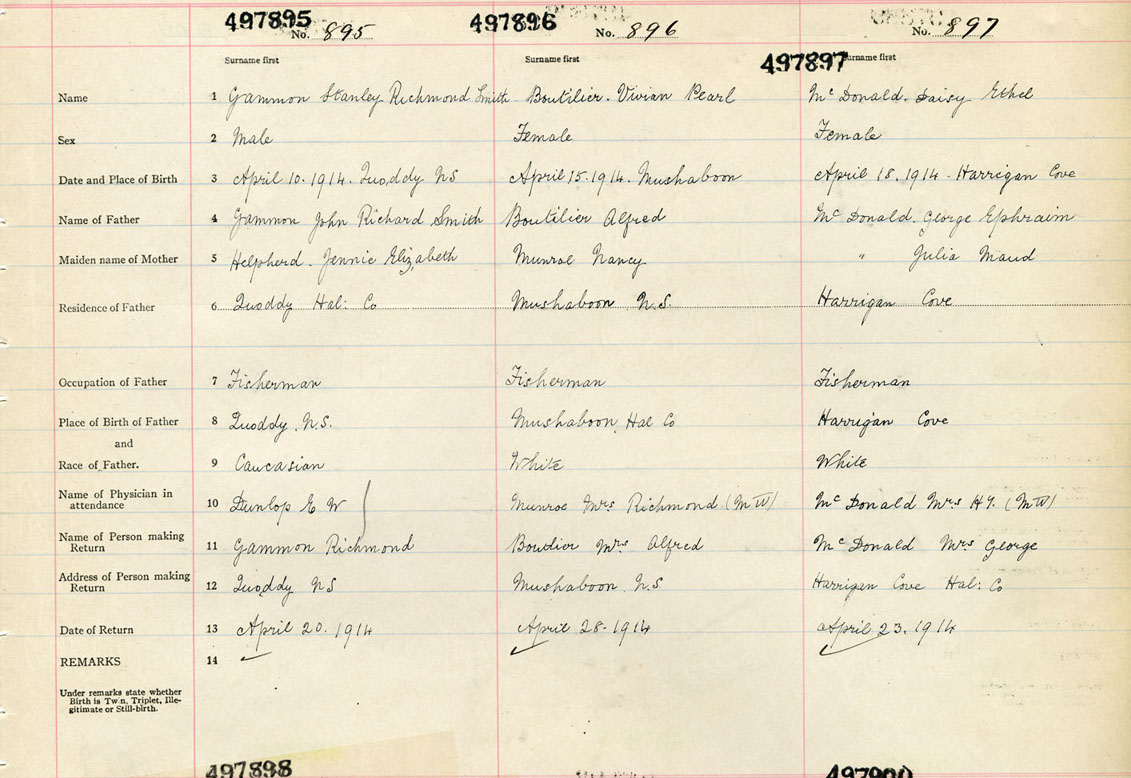 497895 No. 895 497896 No. 896 No. 897
Surname first Surname first 497897 Surname first
Name 1 Gammon Stanley Richmond Smith Boutilier. Vivian Pearl Mc Donald. Daisy Ethel
Sex 2 Male Female Female
Date and Place of Birth 3 April 10. 1914. Quoddy NS April 15. 1914. Mushaboon April 18. 1914 - Harrigan Cove
Name of Father 4 Gammon John Richard Smith Boutilier Alfred Mc Donald. George Ephraim
Maiden name of Mother 5 Helpherd. Jennie Elizabeth Munroe Nancy " Julia Maud
Residence of Father 6 Quoddy Hal: Co Mushaboon N.S. Harrigan Cove
Occupation of Father 7 Fisherman Fisherman Fisherman
Place of Birth of Father 8 Quoddy. N.S. Mushaboon, Hal Co Harrigan Cove
and
Race of Father. 9 Caucasian White White
Name of Physician in
attendance 10 Dunlop E W Munroe Mrs Richmond (MW) Mc Donald Mrs HY. (MW)
Name of Person making
Return 11 Gammon Richmond Boudier Mrs Alfred Mc Donald Mrs George
Address of Person making
Return 12 Quoddy NS Mushaboon N.S Harrigan Cove Hal: Co
Date of Return 13 April 20. 1914 April 28 - 1914 April 23. 1914
REMARKS 14
Under remarks state whether
Birth is Twin, Triplet, Ille-
gitimate or Still-birth.
497898 497900